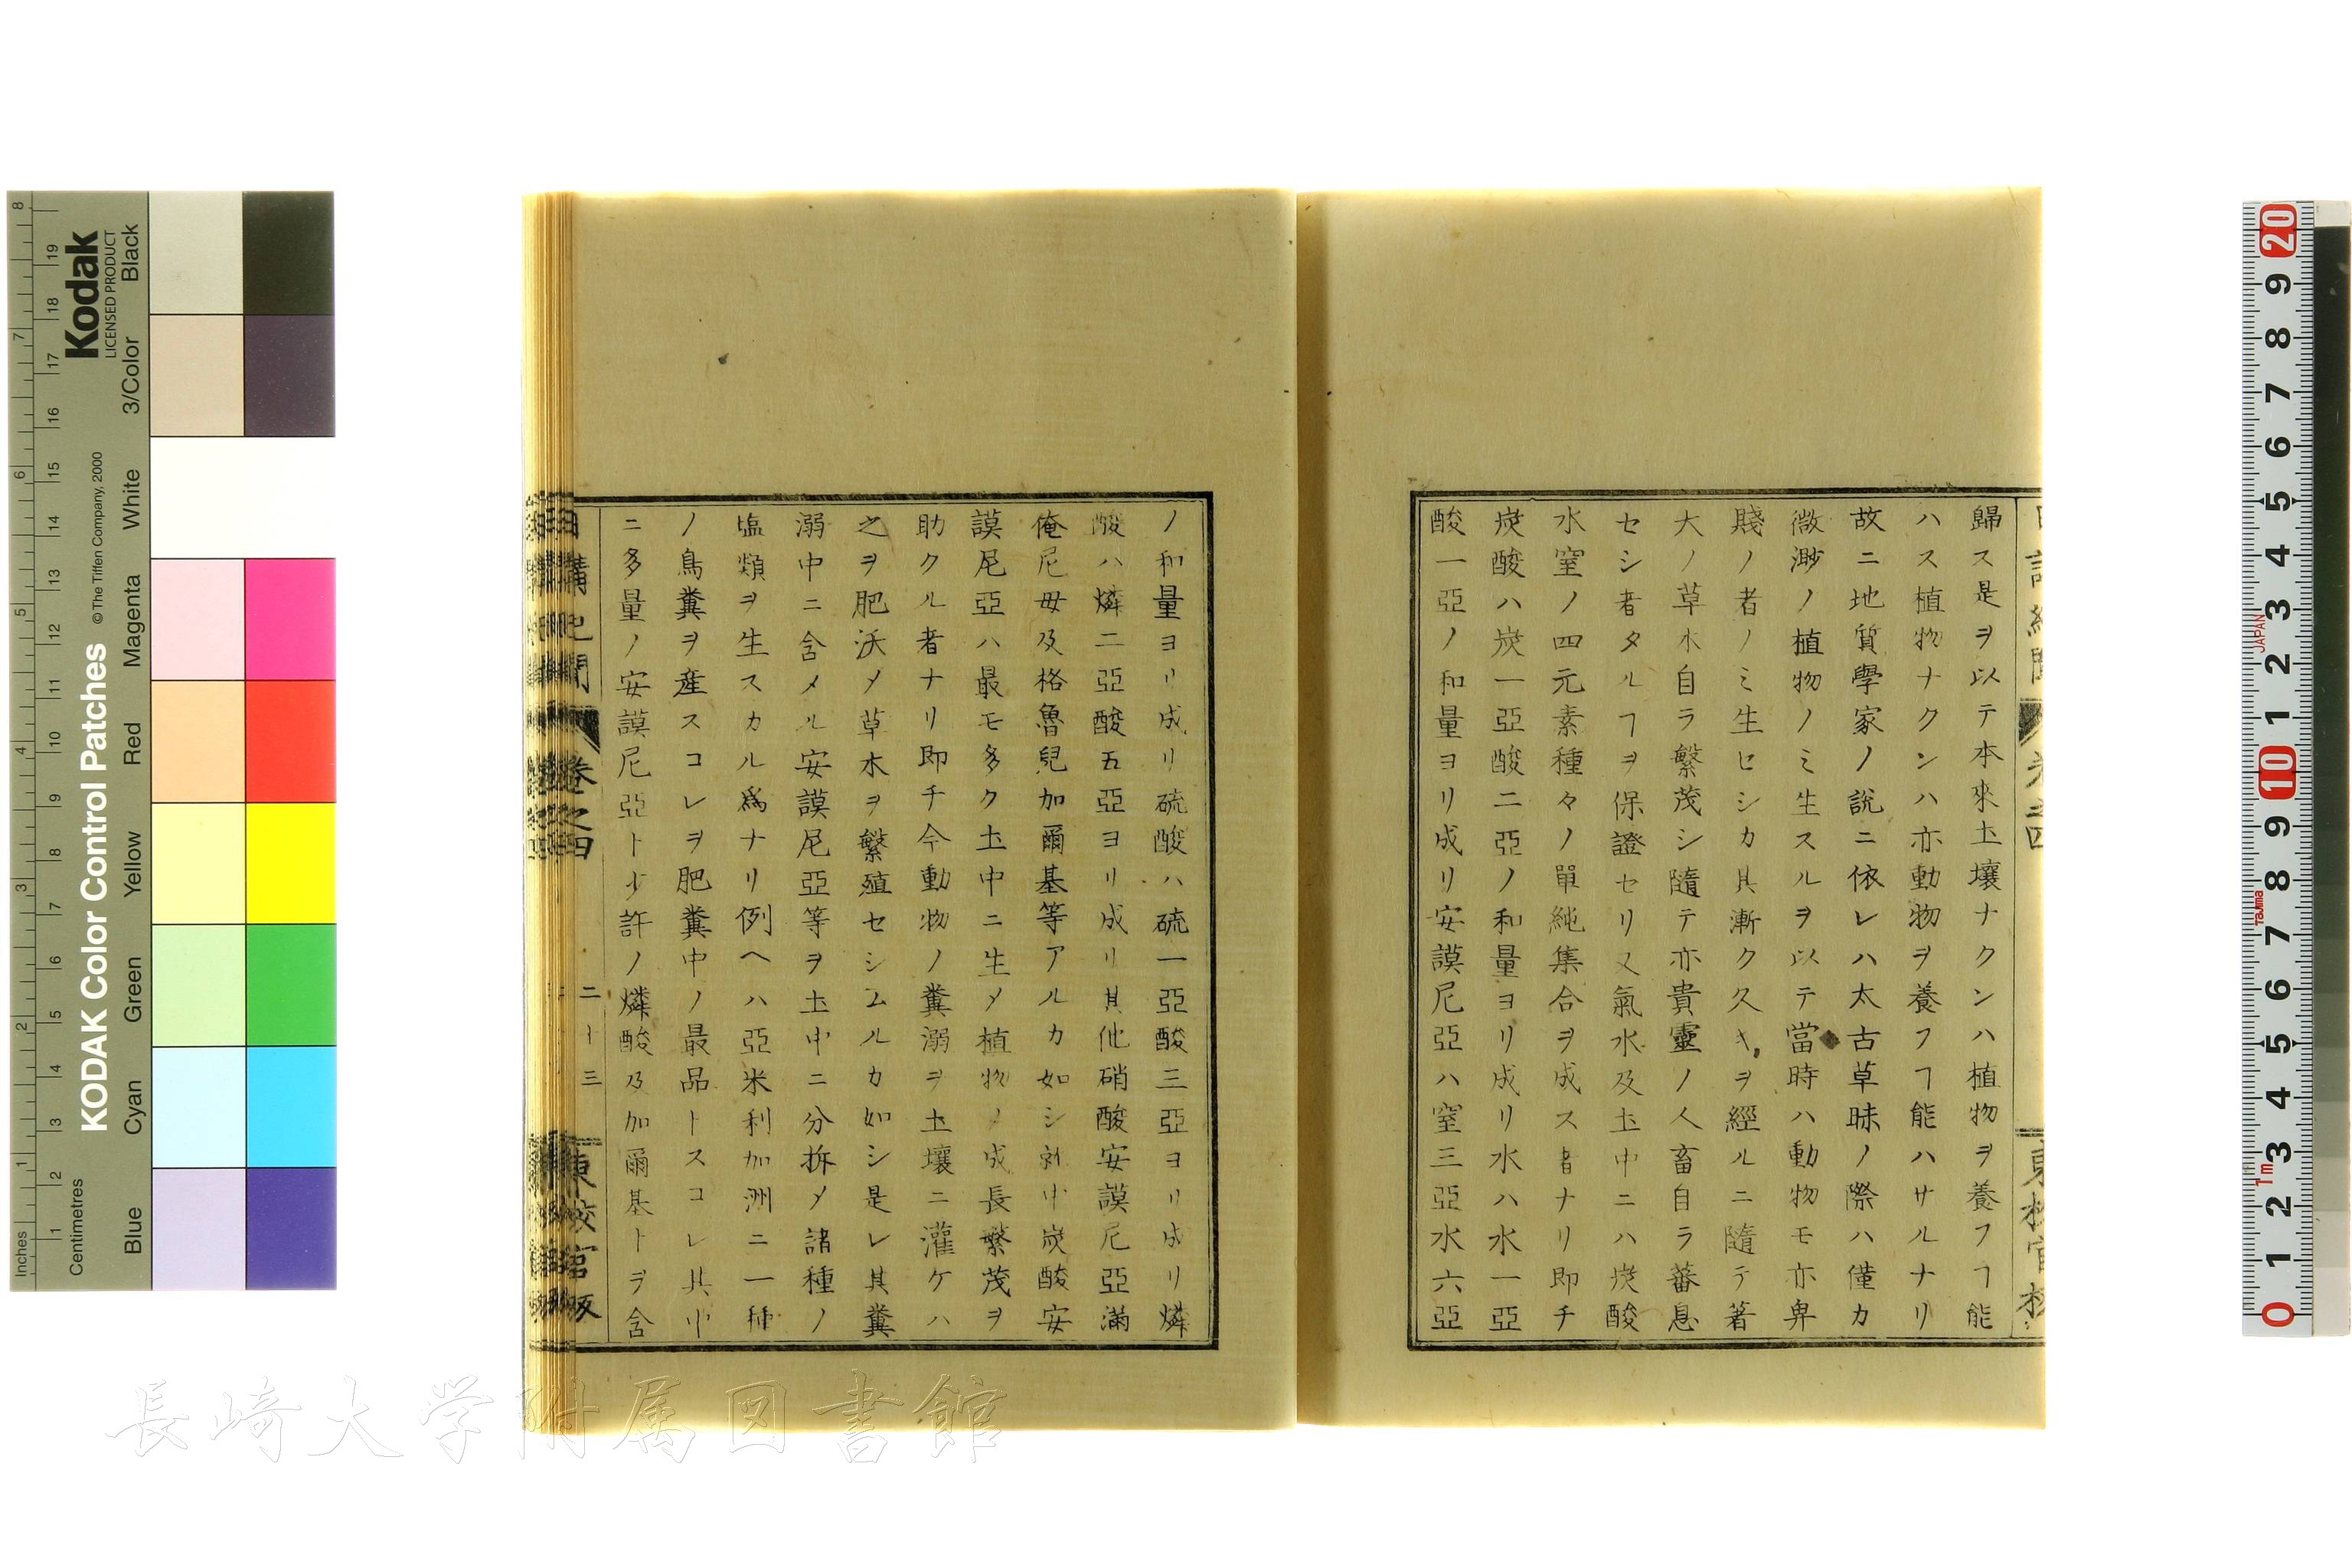 歸ス是ヲ以テ本來土壤ナクンハ植物ヲ養フヿ能
ハス植物ナクンハ亦動物ヲ養フヿ能ハサルナリ
故ニ地質學家ノ説ニ依レハ太古草昧ノ際ハ僅カ
微渺ノ植物ノミ生スルヲ以テ當時ハ動物モ亦卑
賤ノ者ノミ生セシカ其漸ク久キヲ經ルニ隨テ著
大ノ草木自ラ繁茂シ隨テ亦貴靈ノ人畜自ラ蕃息
セシ者タルヿヲ保證セリ又氣水及土中ニハ炭酸
水窒ノ四元素種々ノ單純集合ヲ成ス者ナリ即チ
炭酸ハ炭一亞酸二亞ノ和量ヨリ成リ水ハ水一亞
酸一亞ノ和量ヨリ成リ安謨尼亞ハ窒三亞水六亞
ノ和量ヨリ成リ硫酸ハ硫一亞酸三亞ヨリ成リ燐
酸ハ燐二亞酸五亞ヨリ成リ其他硝酸安謨尼亞滿
俺尼毋及格魯兒加爾基等アルカ如シ就中炭酸安
謨尼亞ハ最モ多ク土中ニ生メ植物ノ成長繁茂ヲ
助クル者ナリ即チ今動物ノ糞溺ヲ土壤ニ灌ケハ
之ヲ肥沃メ草木ヲ繁殖セシムルカ如シ是レ其糞
溺中ニ含メル安謨尼亞等ヲ土中ニ分拆メ諸種ノ
塩類ヲ生スカル爲ナリ例ヘハ亞米利加洲ニ一種
ノ鳥糞ヲ産スコレヲ肥糞中ノ最品トスコレ其中
ニ多量ノ安謨尼亞ト少許ノ燐酸及加爾基トヲ含
卷之四
二十三
東校官版
長崎大学附属図書館
KODAK Color Control Patches
© The Tiffen Company, 2000
Kodak
LICENSED PRODUCT
Inches
Centimetres
Blue
Cyan
Green
Yellow
Red
Magenta
White
3/Color
Black
JAPAN
Tajima
1m